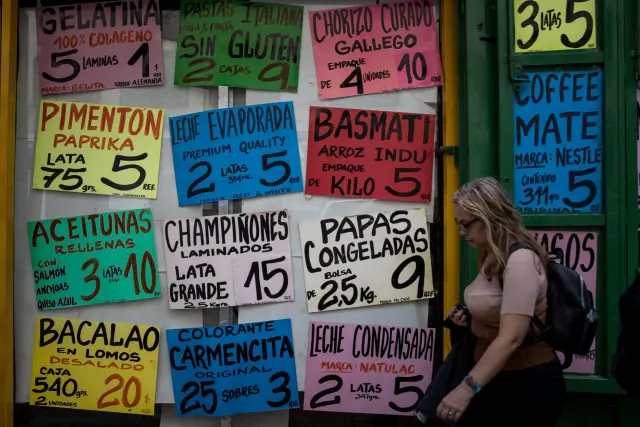 GELATINA
100% COLAGENO
5 LAMINAS 1
MARCA: GELITA ORIGEN ALEMANIA
PASTAS ITALIANA
SIN GLUTEN
2 CAJAS 9
CHORIZO CURADO
GALLEGO
EMPAQUE
DE 4 UNIDADES 10 REF.
3 LATAS 5
PIMENTON
PAPRIKA
LATA
75 grs. 5 REF.
LECHE EVAPORADA
PREMIUM QUALITY
2 LATAS 5
BASMATI
ARROZ INDU
EMPAQUE
DE KILO 5
COFFEE
MATE
MARCA: NESTLE
CONTENIDO
311 grs 5
ORIGINAL
ACEITUNAS
RELLENAS
CON
SALMÓN
ANCHOAS
QUESO AZUL
3 LATAS 10
CHAMPIÑONES
LAMINADOS
LATA
GRANDE 15
2.5 KG.
PAPAS
CONGELADAS
BOLSA
DE 2.5 KG. 9 REF
BACALAO
EN LOMOS
DESALADO
CAJA
540 grs 20 $
2 UNIDADES
COLORANTE
CARMENCITA
ORIGINAL
25 SOBRES 3
LECHE CONDENSADA
MARCA: NATULAC
2 LATAS 5
397 grs.